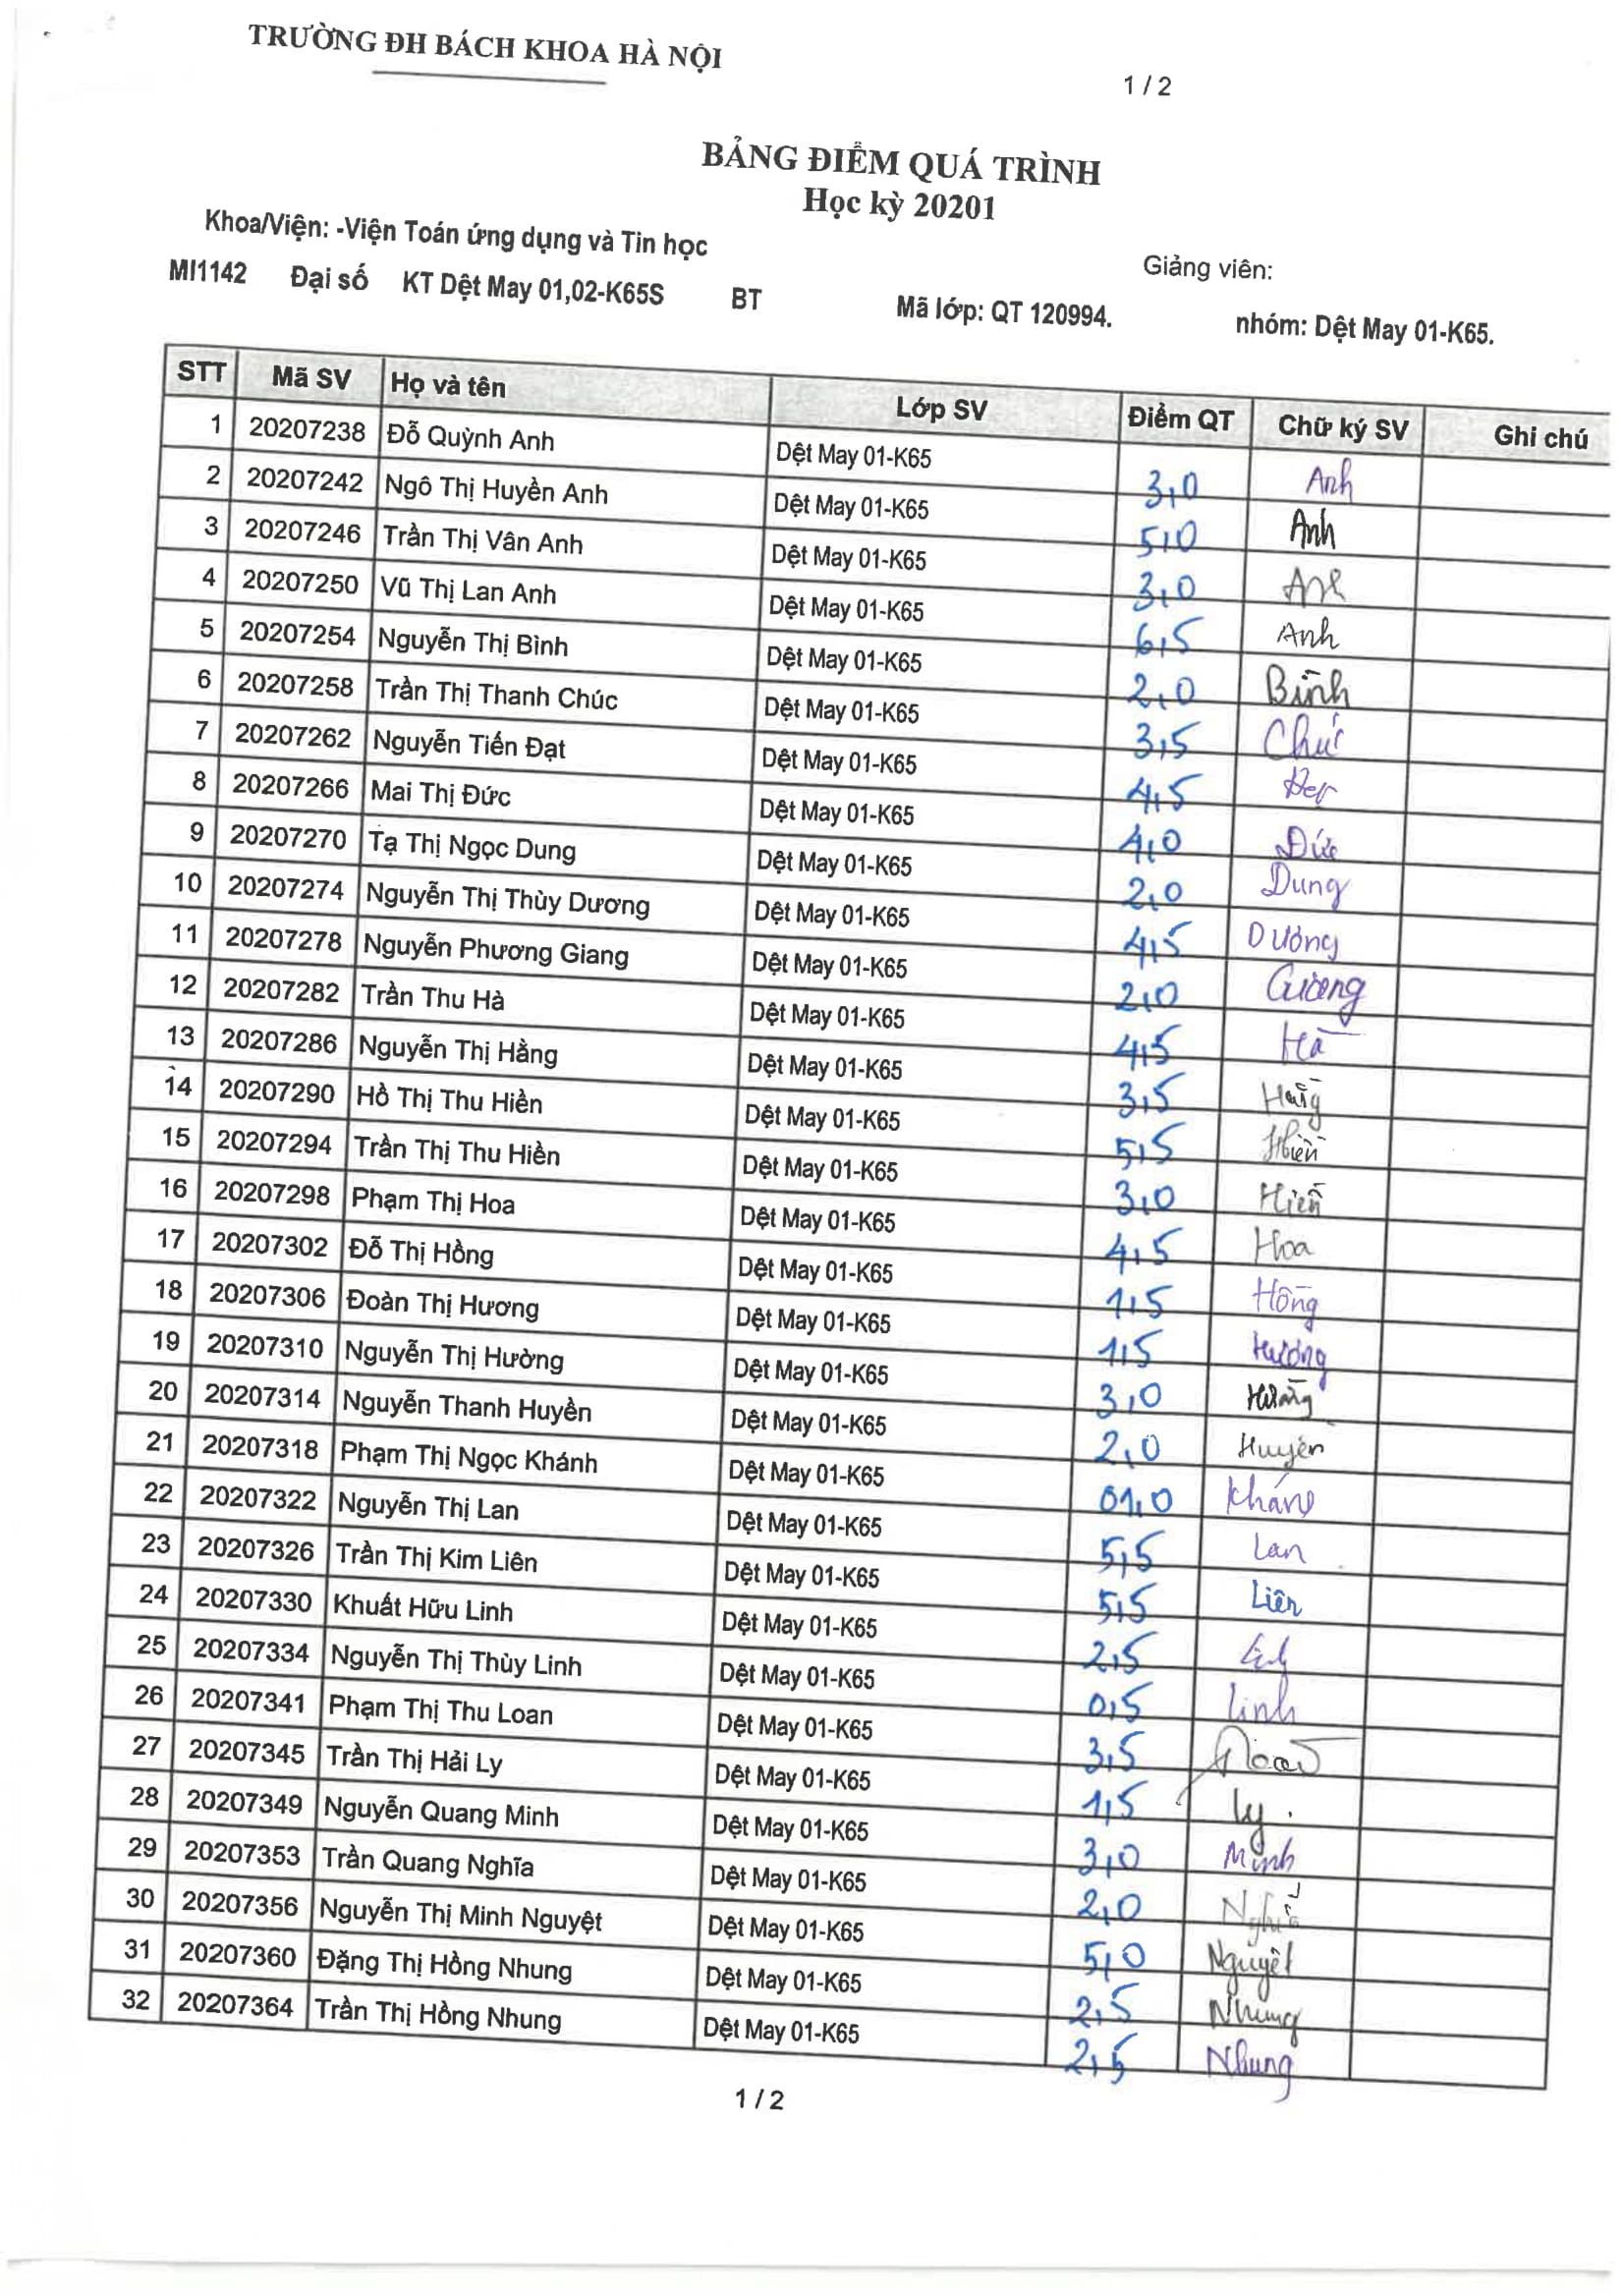 TRƯỜNG ĐH BÁCH KHOA HÀ NỘI
1 / 2
BẢNG ĐIỂM QUÁ TRÌNH
Học kỳ 20201
Khoa/Viện: -Viện Toán ứng dụng và Tin học
Giảng viên:
MI1142 Đại số KT Dệt May 01,02-K65S BT Mã lớp: QT 120994. nhóm: Dệt May 01-K65.
STT Mã SV Họ và tên Lớp SV Điểm QT Chữ ký SV Ghi chú
1 20207238 Đỗ Quỳnh Anh Dệt May 01-K65 3,0 Anh
2 20207242 Ngô Thị Huyền Anh Dệt May 01-K65 5,0 Anh
3 20207246 Trần Thị Vân Anh Dệt May 01-K65 3,0 Anh
4 20207250 Vũ Thị Lan Anh Dệt May 01-K65 6,5 Anh
5 20207254 Nguyễn Thị Bình Dệt May 01-K65 2,0 Bình
6 20207258 Trần Thị Thanh Chúc Dệt May 01-K65 3,5 Chúc
7 20207262 Nguyễn Tiến Đạt Dệt May 01-K65 4,5
8 20207266 Mai Thị Đức Dệt May 01-K65 4,0 Đức
9 20207270 Tạ Thị Ngọc Dung Dệt May 01-K65 2,0 Dung
10 20207274 Nguyễn Thị Thùy Dương Dệt May 01-K65 4,5 Dương
11 20207278 Nguyễn Phương Giang Dệt May 01-K65 2,0
12 20207282 Trần Thu Hà Dệt May 01-K65 4,5 Hà
13 20207286 Nguyễn Thị Hằng Dệt May 01-K65 3,5 Hằng
14 20207290 Hồ Thị Thu Hiền Dệt May 01-K65 5,5 Hiền
15 20207294 Trần Thị Thu Hiền Dệt May 01-K65 3,0 Hiền
16 20207298 Phạm Thị Hoa Dệt May 01-K65 4,5 Hoa
17 20207302 Đỗ Thị Hồng Dệt May 01-K65 1,5 Hồng
18 20207306 Đoàn Thị Hương Dệt May 01-K65 1,5 Hương
19 20207310 Nguyễn Thị Hường Dệt May 01-K65 3,0 Hường
20 20207314 Nguyễn Thanh Huyền Dệt May 01-K65 2,0 Huyền
21 20207318 Phạm Thị Ngọc Khánh Dệt May 01-K65 01,0 Khánh
22 20207322 Nguyễn Thị Lan Dệt May 01-K65 5,5 Lan
23 20207326 Trần Thị Kim Liên Dệt May 01-K65 5,5 Liên
24 20207330 Khuất Hữu Linh Dệt May 01-K65 2,5
25 20207334 Nguyễn Thị Thùy Linh Dệt May 01-K65 0,5 Linh
26 20207341 Phạm Thị Thu Loan Dệt May 01-K65 3,5 Loan
27 20207345 Trần Thị Hải Ly Dệt May 01-K65 1,5 Ly
28 20207349 Nguyễn Quang Minh Dệt May 01-K65 3,0 Minh
29 20207353 Trần Quang Nghĩa Dệt May 01-K65 2,0 Nghĩa
30 20207356 Nguyễn Thị Minh Nguyệt Dệt May 01-K65 5,0 Nguyệt
31 20207360 Đặng Thị Hồng Nhung Dệt May 01-K65 2,5 Nhung
32 20207364 Trần Thị Hồng Nhung Dệt May 01-K65 2,5 Nhung
1 / 2